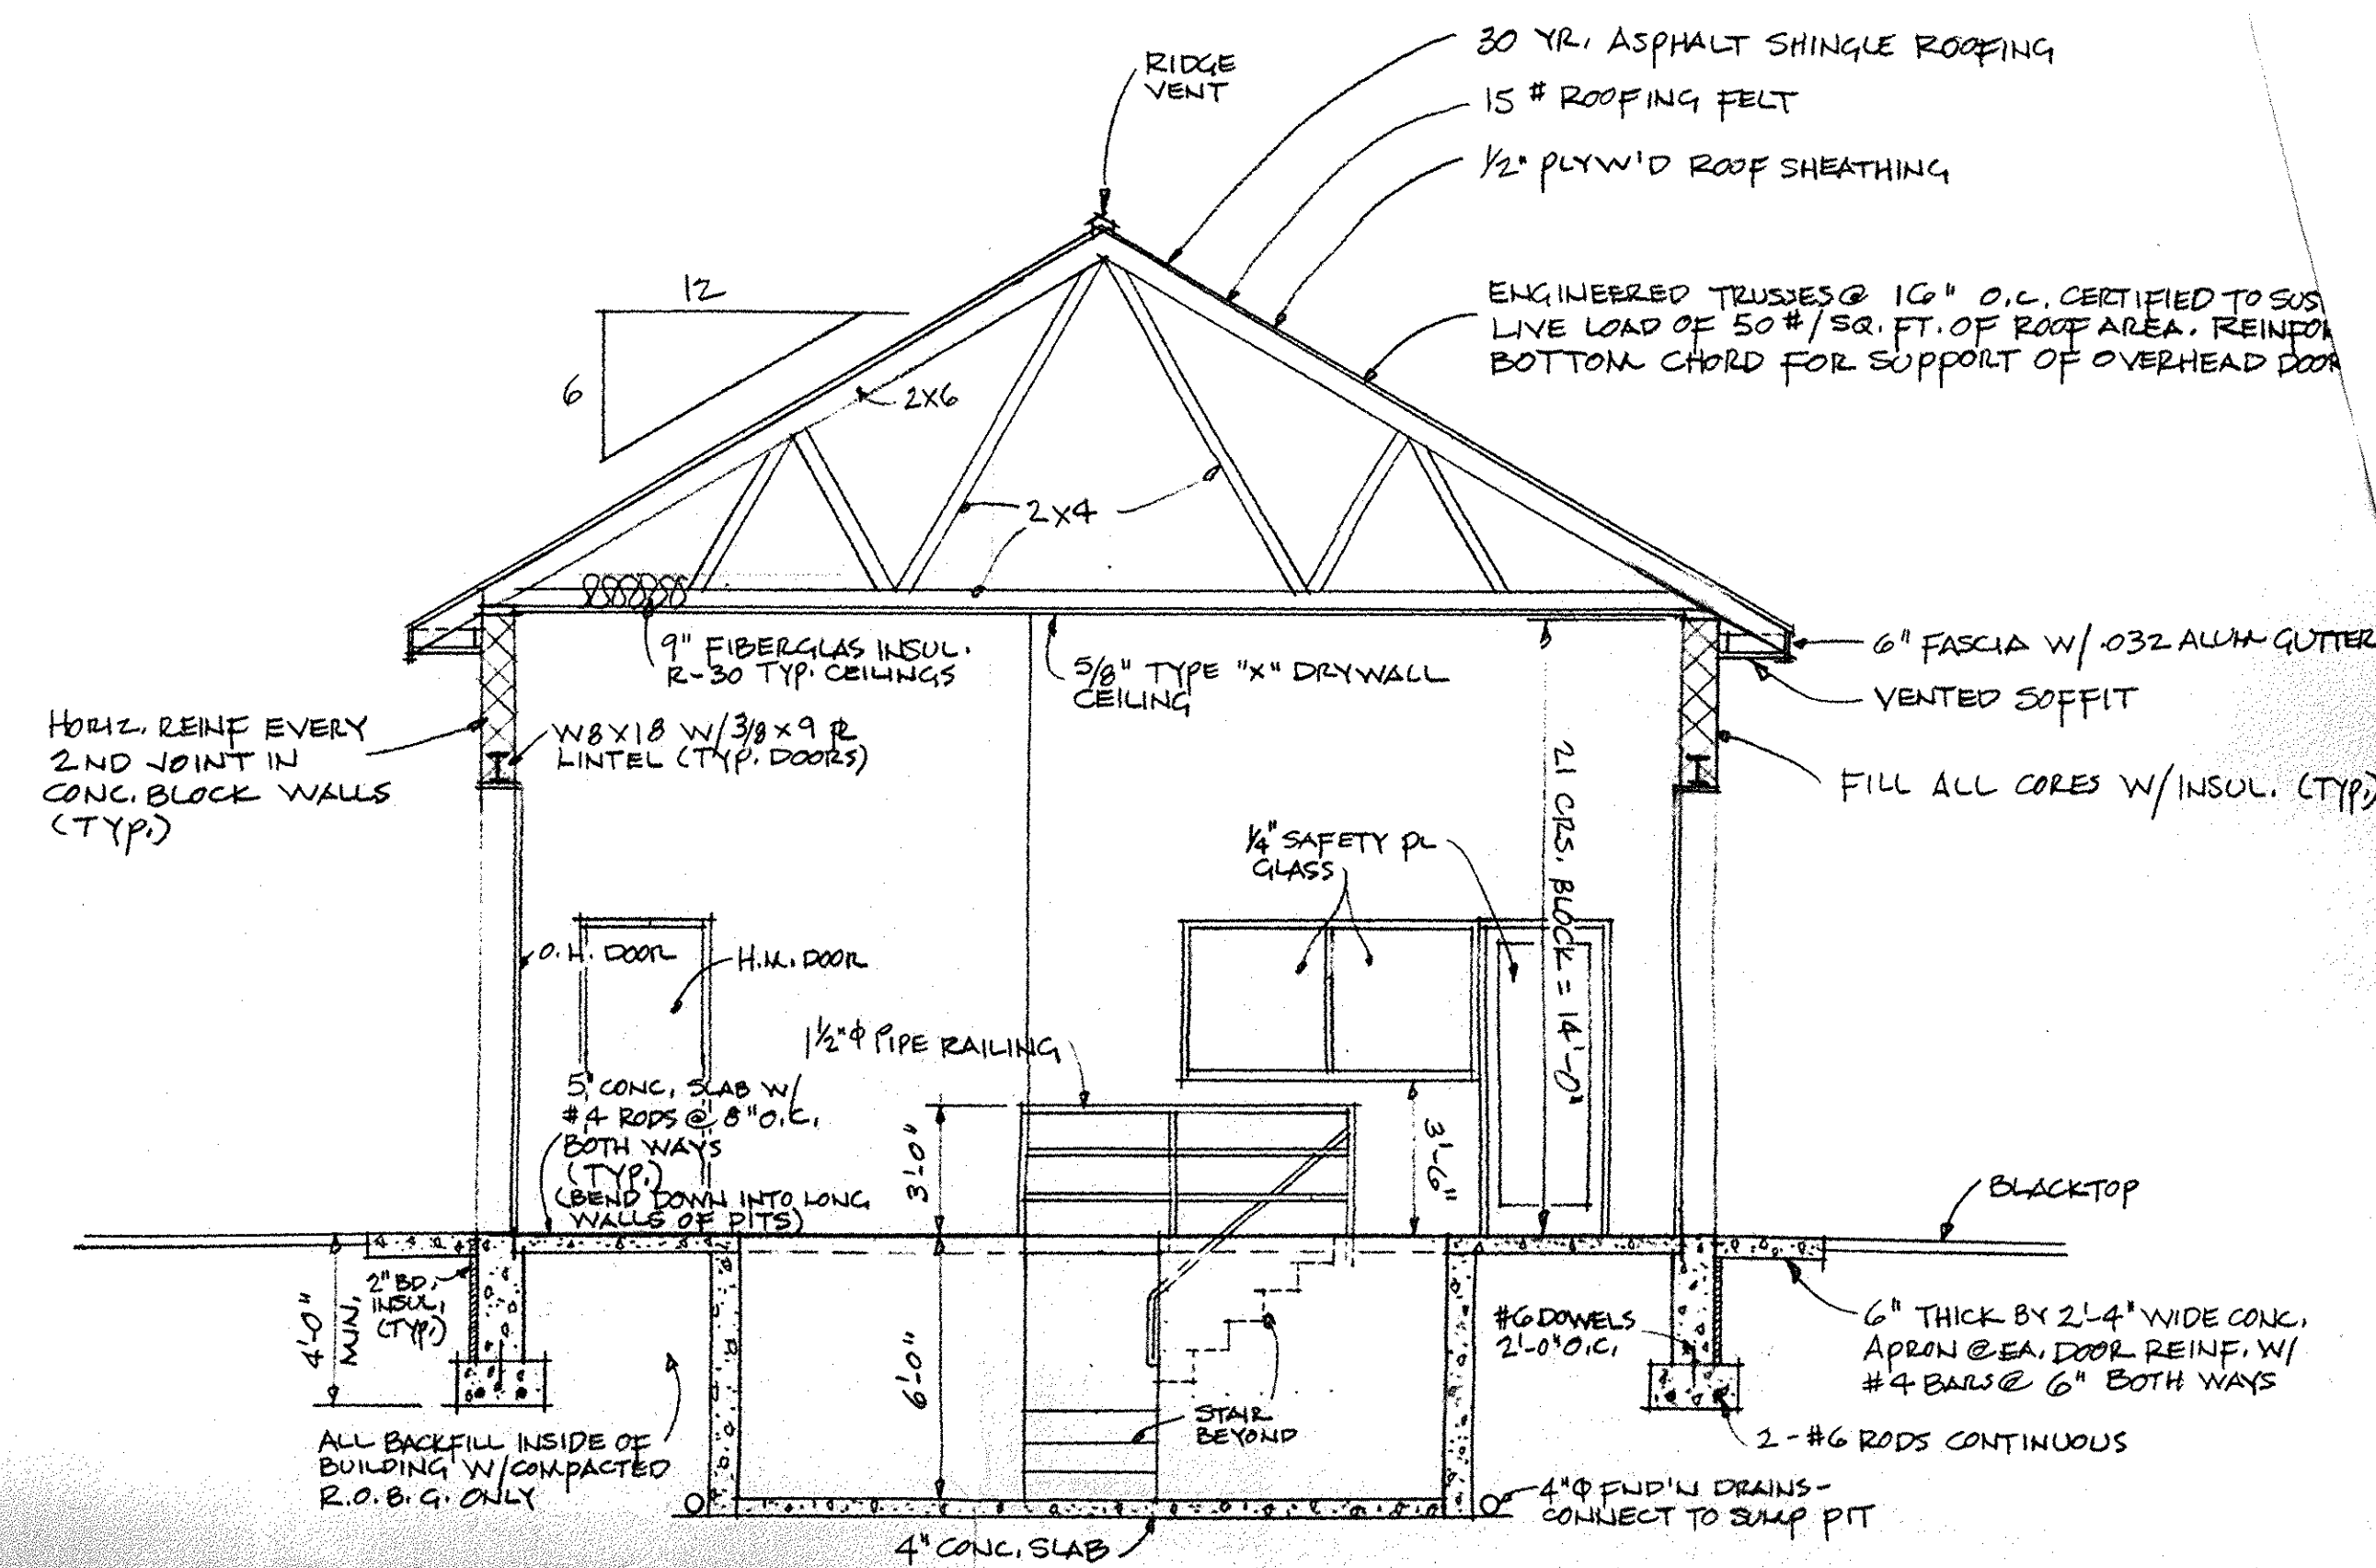 RIDGE
VENT
30 YR. ASPHALT SHINGLE ROOFING
15 # ROOFING FELT
1/2" PLYW'D ROOF SHEATHING
ENGINEERED TRUSSES @ 16" O.C. CERTIFIED TO SUS
LIVE LOAD OF 50 #/SQ. FT. OF ROOF AREA. REINFOR
BOTTOM CHORD FOR SUPPORT OF OVERHEAD DOOR
12
6
2X6
2X4
9" FIBERGLAS INSUL.
R-30 TYP. CEILINGS
5/8" TYPE "X" DRYWALL
CEILING
6" FASCIA W/ .032 ALUM GUTTER
VENTED SOFFIT
HORIZ. REINF EVERY
2ND JOINT IN
CONC. BLOCK WALLS
(TYP.)
W8X18 W/ 3/8 X 9 PL
LINTEL (TYP. DOORS)
21 CRS. BLOCK = 14'-0"
FILL ALL CORES W/ INSUL. (TYP.)
1/4" SAFETY PL
GLASS
O.H. DOOR
H.M. DOOR
1 1/2" φ PIPE RAILING
5" CONC. SLAB W/
#4 RODS @ 8" O.C.
BOTH WAYS
(TYP.)
(BEND DOWN INTO LONG
WALLS OF PITS)
3'-0"
3'-6"
BLACKTOP
4'-0"
MIN.
2" BD.
INSUL.
(TYP.)
6'-0"
#6 DOWELS
2'-0" O.C.
6" THICK BY 2'-4" WIDE CONC.
APRON @ EA. DOOR REINF. W/
#4 BARS @ 6" BOTH WAYS
STAIR
BEYOND
2-#6 RODS CONTINUOUS
ALL BACKFILL INSIDE OF
BUILDING W/ COMPACTED
R.O.B.G. ONLY
4" φ FND'N DRAINS-
CONNECT TO SUMP PIT
4" CONC. SLAB